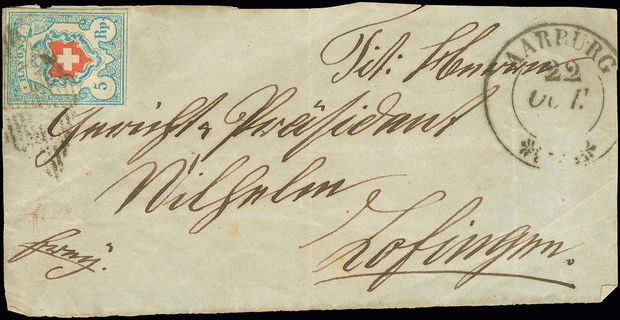 RAYON
5 Rp.
AARBURG
22
Oct.
Tit. Herrn
Gerichts Präsident
Wilhelm
Zofingen.
franz.